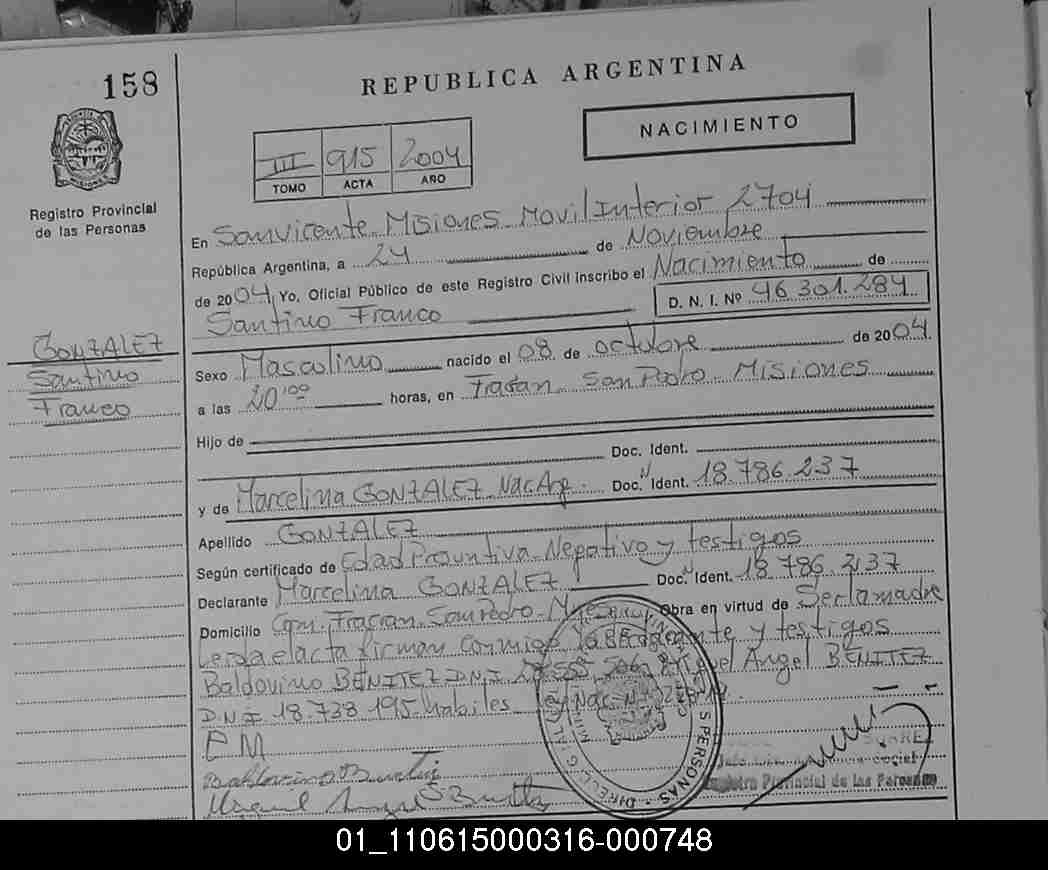 158
REPUBLICA ARGENTINA
NACIMIENTO
III 915 2004
TOMO ACTA AÑO
Registro Provincial
de las Personas
En San Vicente Misiones Movil Interior 2704
República Argentina, a 24 de Noviembre
de 2004 Yo, Oficial Público de este Registro Civil inscribo el Nacimiento de
Santino Franco D. N. I. Nº 46 301.284
GONZALEZ
Santino
Franco
Sexo Masculino nacido el 08 de octubre de 2004
a las 20,00 horas, en Fracan San Pedro Misiones
Hijo de
Doc. Ident.
y de Marcelina GONZALEZ Nac. Arg. Doc. Ident. 18.786.237
Apellido GONZALEZ
Según certificado de Edad Prountiva Negativo y testigos
Declarante Marcelina GONZALEZ Doc. Ident. 18 786.237
Domicilio Com. Fracran San Pedro Obra en virtud de Ser la madre
Leida el acta firman conmigo y testigos
Baldovino BENITEZ D.N.I. Miguel Angel BENITEZ
D.N.I 18.738 195 Habiles Ley Nac. Nº
P M
Baldovino
Miguel Angel
SUAREZ
Registro Provincial de las Personas
PERSONAS - DIRECC G
01_110615000316-000748